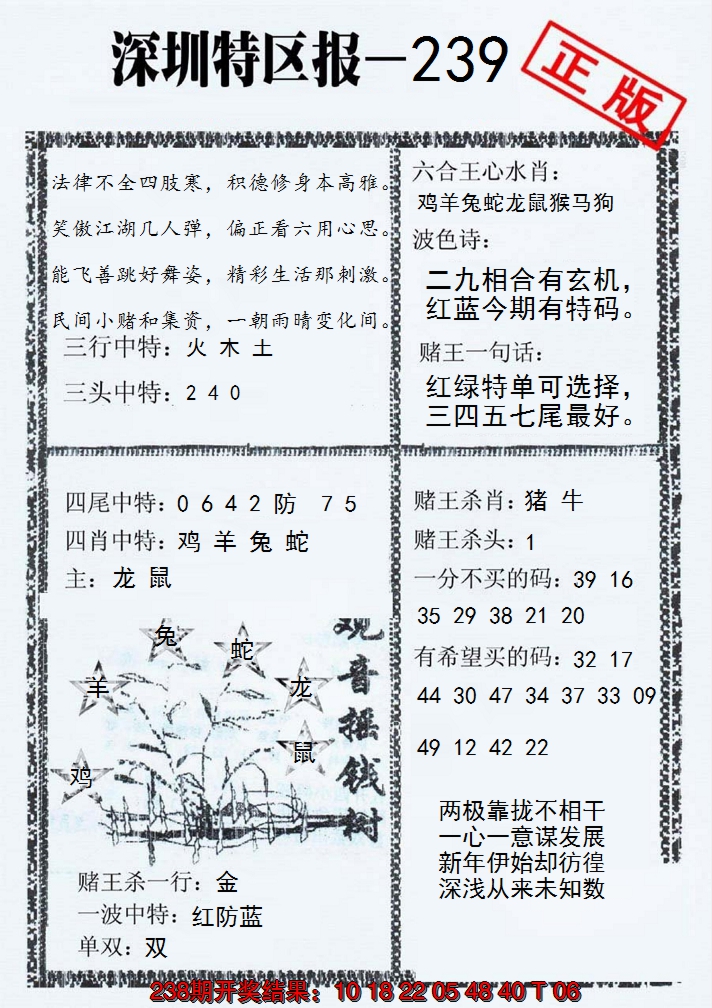 深圳特区报—239
正版
法律不全四肢寒，积德修身本高雅。
笑傲江湖几人弹，偏正看六用心思。
能飞善跳好舞姿，精彩生活那刺激。
民间小赌和集资，一朝雨晴变化间。
三行中特：火 木 土
三头中特：2 4 0
六合王心水肖：
鸡羊兔蛇龙鼠猴马狗
波色诗：
二九相合有玄机，
红蓝今期有特码。
赌王一句话：
红绿特单可选择，
三四五七尾最好。
四尾中特：0 6 4 2 防 7 5
四肖中特：鸡 羊 兔 蛇
主：龙 鼠
兔
蛇
羊
龙
鼠
鸡
观音摇钱树
赌王杀一行：金
一波中特：红防蓝
单双：双
赌王杀肖：猪 牛
赌王杀头：1
一分不买的码：39 16
35 29 38 21 20
有希望买的码：32 17
44 30 47 34 37 33 09
49 12 42 22
两极靠拢不相干
一心一意谋发展
新年伊始却彷徨
深浅从来未知数
238期开奖结果：10 18 22 05 48 40 T 06